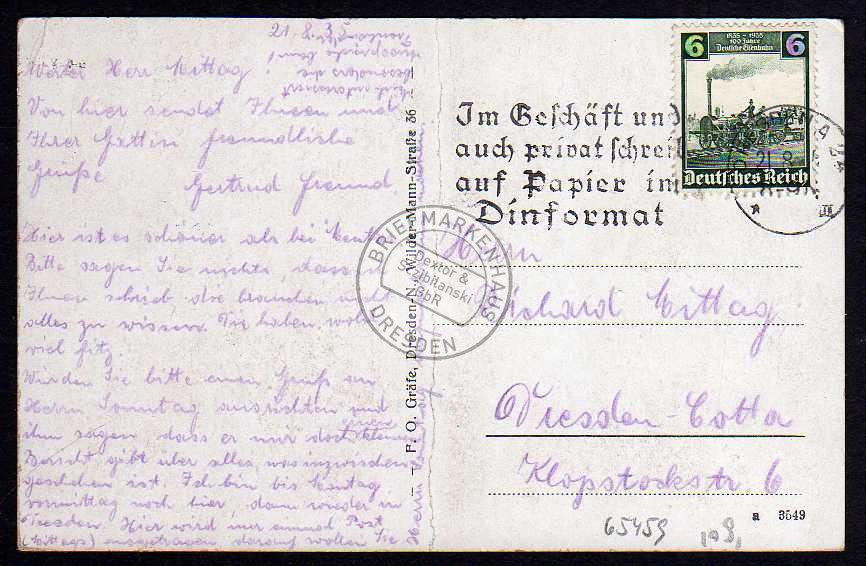 21.8.35
Werter Herr Mittag!
Von hier sendet Ihnen und
Ihrer Gattin freundliche
Grüße
Gertrud Freund.
Hier ist es schöner als bei
Bitte sagen Sie nichts, dass ich
Ihnen schrieb, die brauchen nicht
alles zu wissen. Sie haben wohl
viel Hitz.
Würden Sie bitte einen Gruß an
Herrn Sonntag ausrichten und
ihm sagen, dass er mir doch
Bericht gibt über alles, was inzwischen
geschehen ist. Ich bin bis Montag
vormittag noch hier, dann wieder in
Dresden. Hier wird nur einmal Post
(Mittags) ausgetragen darauf wollen Sie
Herrn Sonntag
F. O. Gräfe, Dresden-N., Wilder-Mann-Straße 36
Im Geschäft und
auch privat schreibt
auf Papier im
Dinformat
6 1835-1935 6
100 Jahre
Deutsche Eisenbahn
Deutsches Reich
A 24
21.8
BRIEFMARKENHAUS
Dextor &
GbR
DRESDEN
Herrn
Richard Mittag
Dresden-Cotta
Klopstockstr 6
a 3549
65459